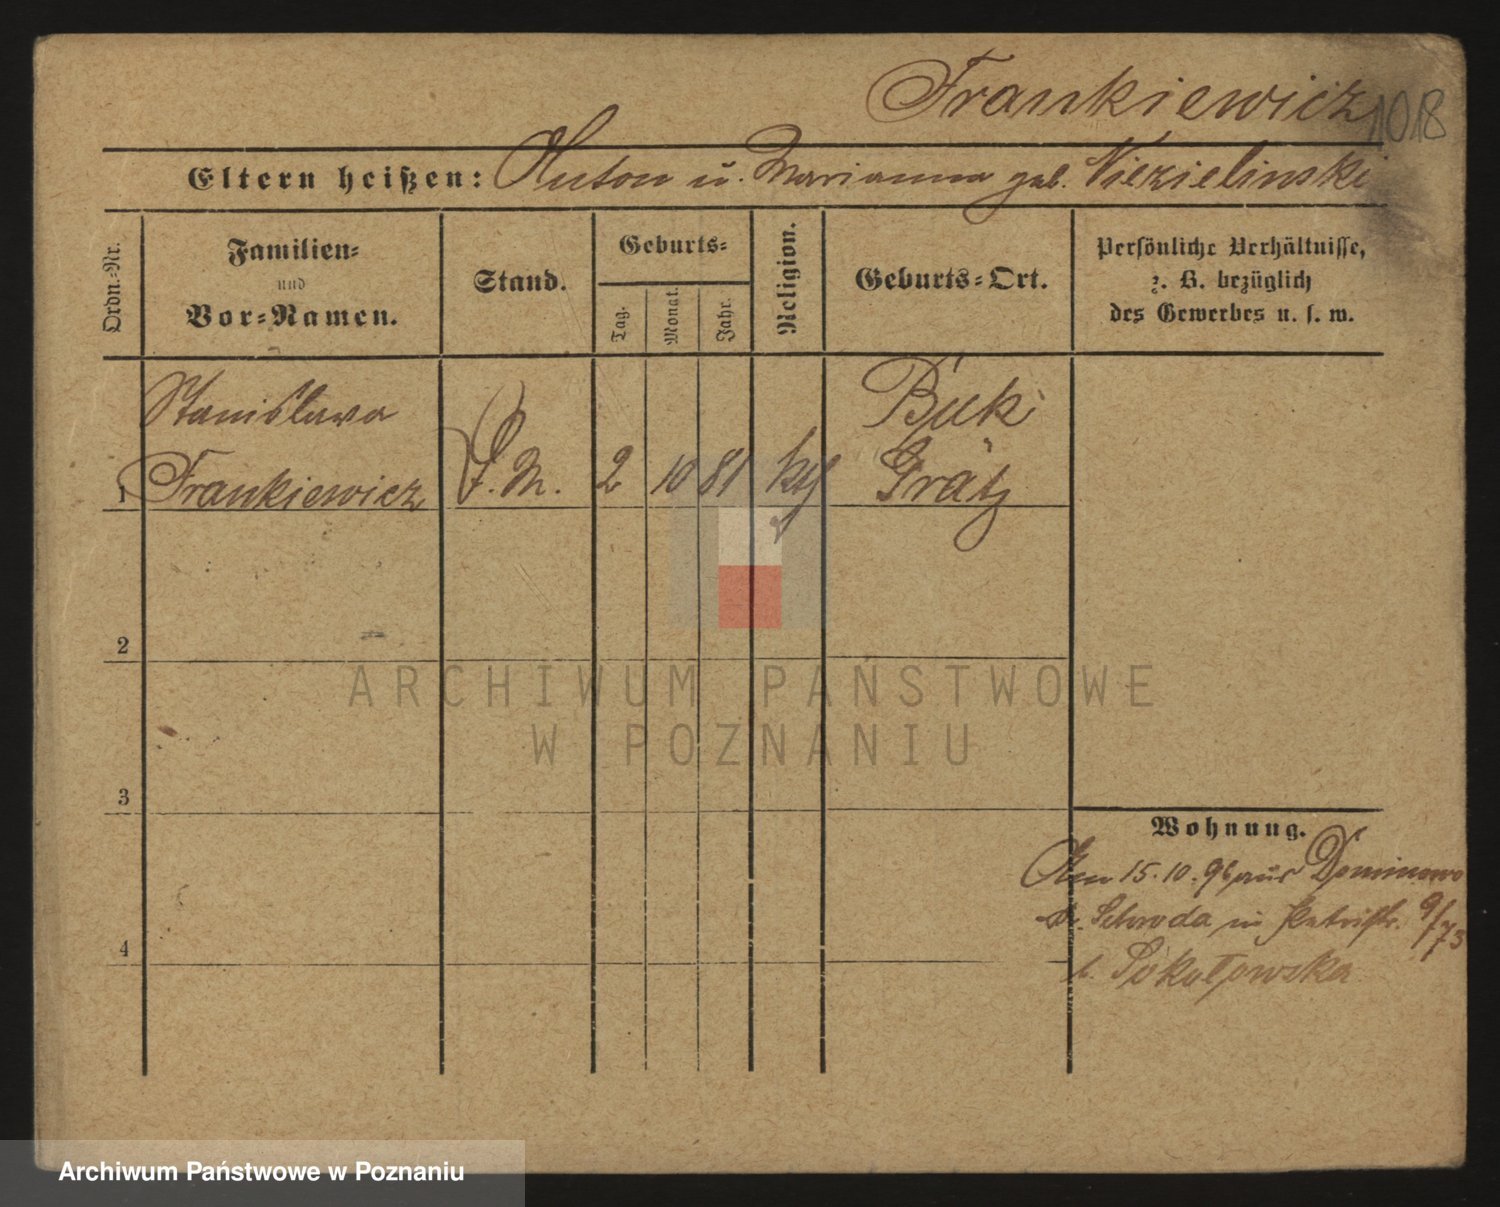 Frankiewicz
1018
Eltern heißen: Anton u. Marianna geb. Niezielinski
Ordn.-Nr.
Familien-
und
Vor-Namen.
Stand.
Geburts-
Tag.
Monat.
Jahr.
Religion.
Geburts-Ort.
Persönliche Verhältnisse,
z. B. bezüglich
des Gewerbes u. s. w.
Stanislawa Buk
1 Frankiewicz D. M. 2 10 81 kth Grätz
2
ARCHIWUM PAŃSTWOWE
W POZNANIU
3
Wohnung.
15.10.96 aus Dominowo
Schroda in Petristr. 9/73
b. Sokołowska
4
Archiwum Państwowe w Poznaniu